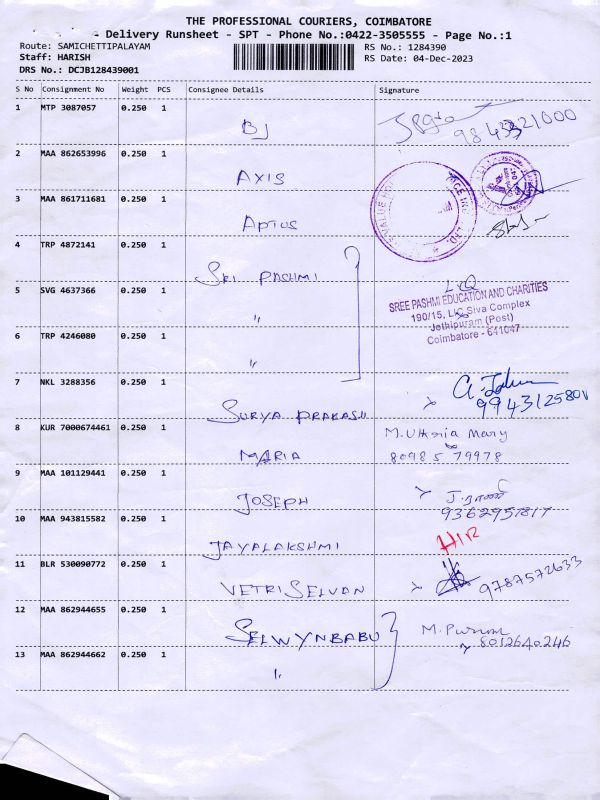 THE PROFESSIONAL COURIERS, COIMBATORE
- Delivery Runsheet - SPT - Phone No.:0422-3505555 - Page No.:1
Route: SAMICHETTIPALAYAM RS No.: 1284390
Staff: HARISH RS Date: 04-Dec-2023
DRS No.: DCJB128439001
S No Consignment No Weight PCS Consignee Details Signature
1 MTP 3087057 0.250 1
BJ 9843321000
2 MAA 862653996 0.250 1
AXIS
3 MAA 861711681 0.250 1
APTUS
4 TRP 4872141 0.250 1
SRI PASHMI
5 SVG 4637366 0.250 1
"
SREE PASHMI EDUCATION AND CHARITIES
190/15, LIC Siva Complex
Jothipuram (Post)
Coimbatore - 641047
6 TRP 4246080 0.250 1
"
7 NKL 3288356 0.250 1
SURYA PRAKASH
8 KUR 7000674461 0.250 1
MARIA 80985 79978
9 MAA 101129441 0.250 1
JOSEPH
9362951817
10 MAA 943815582 0.250 1
JAYALAKSHMI
11 BLR 530090772 0.250 1
VETRI SELVAN 9787572633
12 MAA 862944655 0.250 1
SELWYNBABU
8012640246
13 MAA 862944662 0.250 1
"